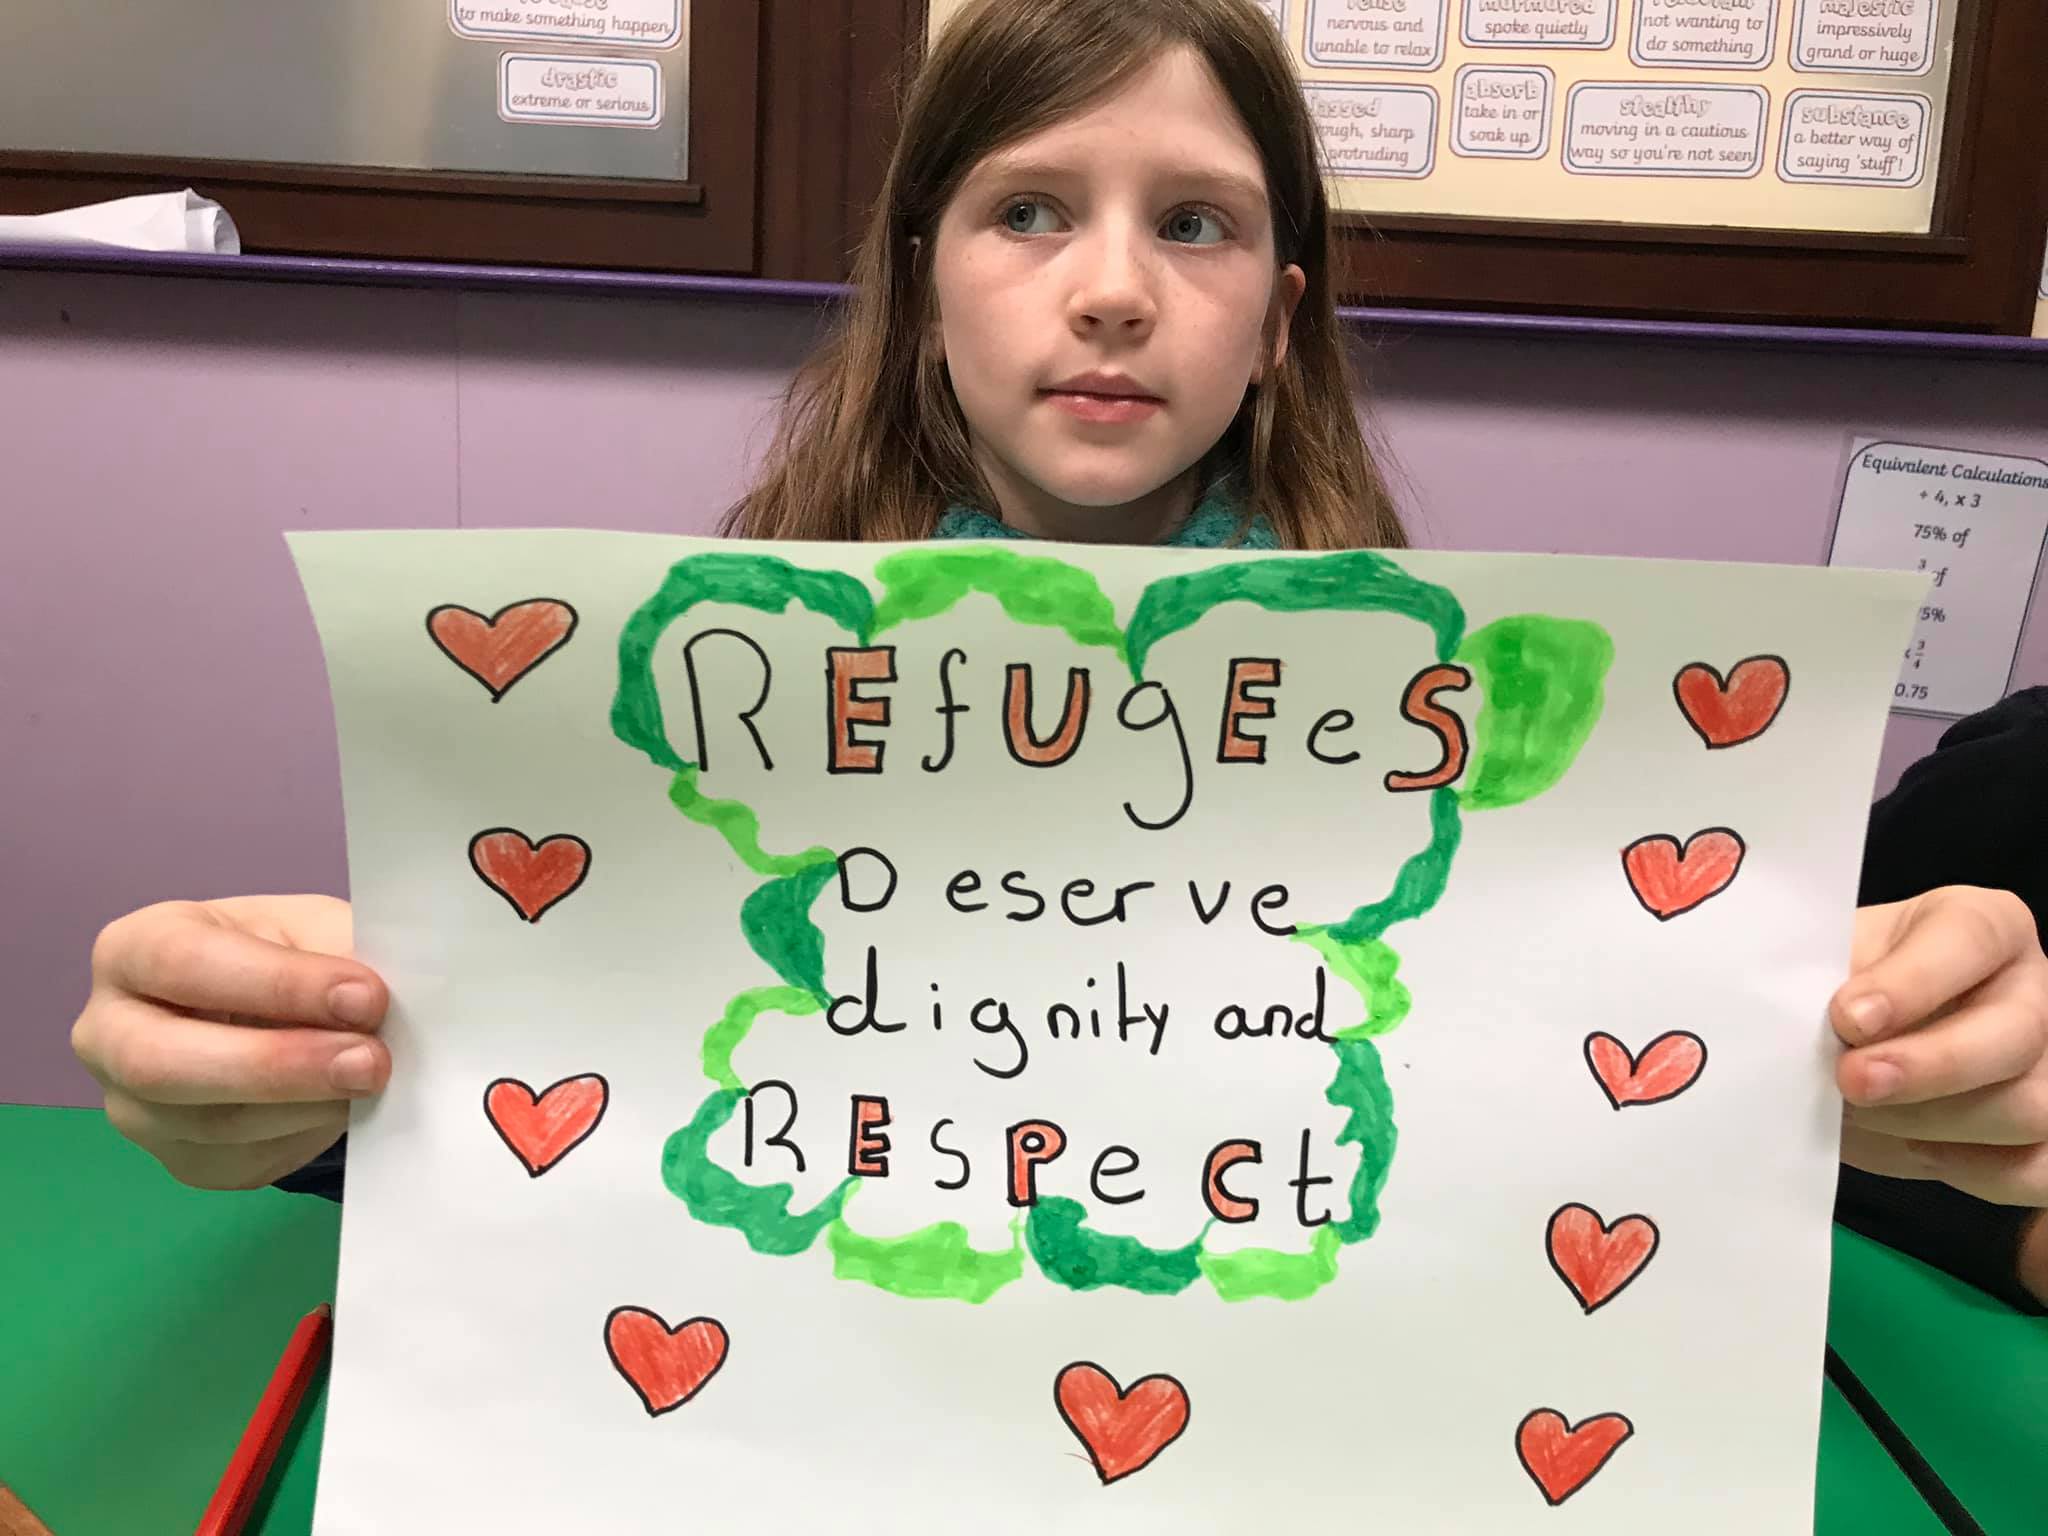 to make something happen
drastic
extreme or serious
nervous and
unable to relax
murmured
spoke quietly
not wanting to
do something
majestic
impressively
grand or huge
jagged
sharp
protruding
absorb
take in or
soak up
stealthy
moving in a cautious
way so you're not seen
substance
a better way of
saying 'stuff'!
Equivalent Calculations
÷ 4, x 3
75% of
3/4 of
3/4
0.75
REfUgEeS
Deserve
dignity and
REsPeCt